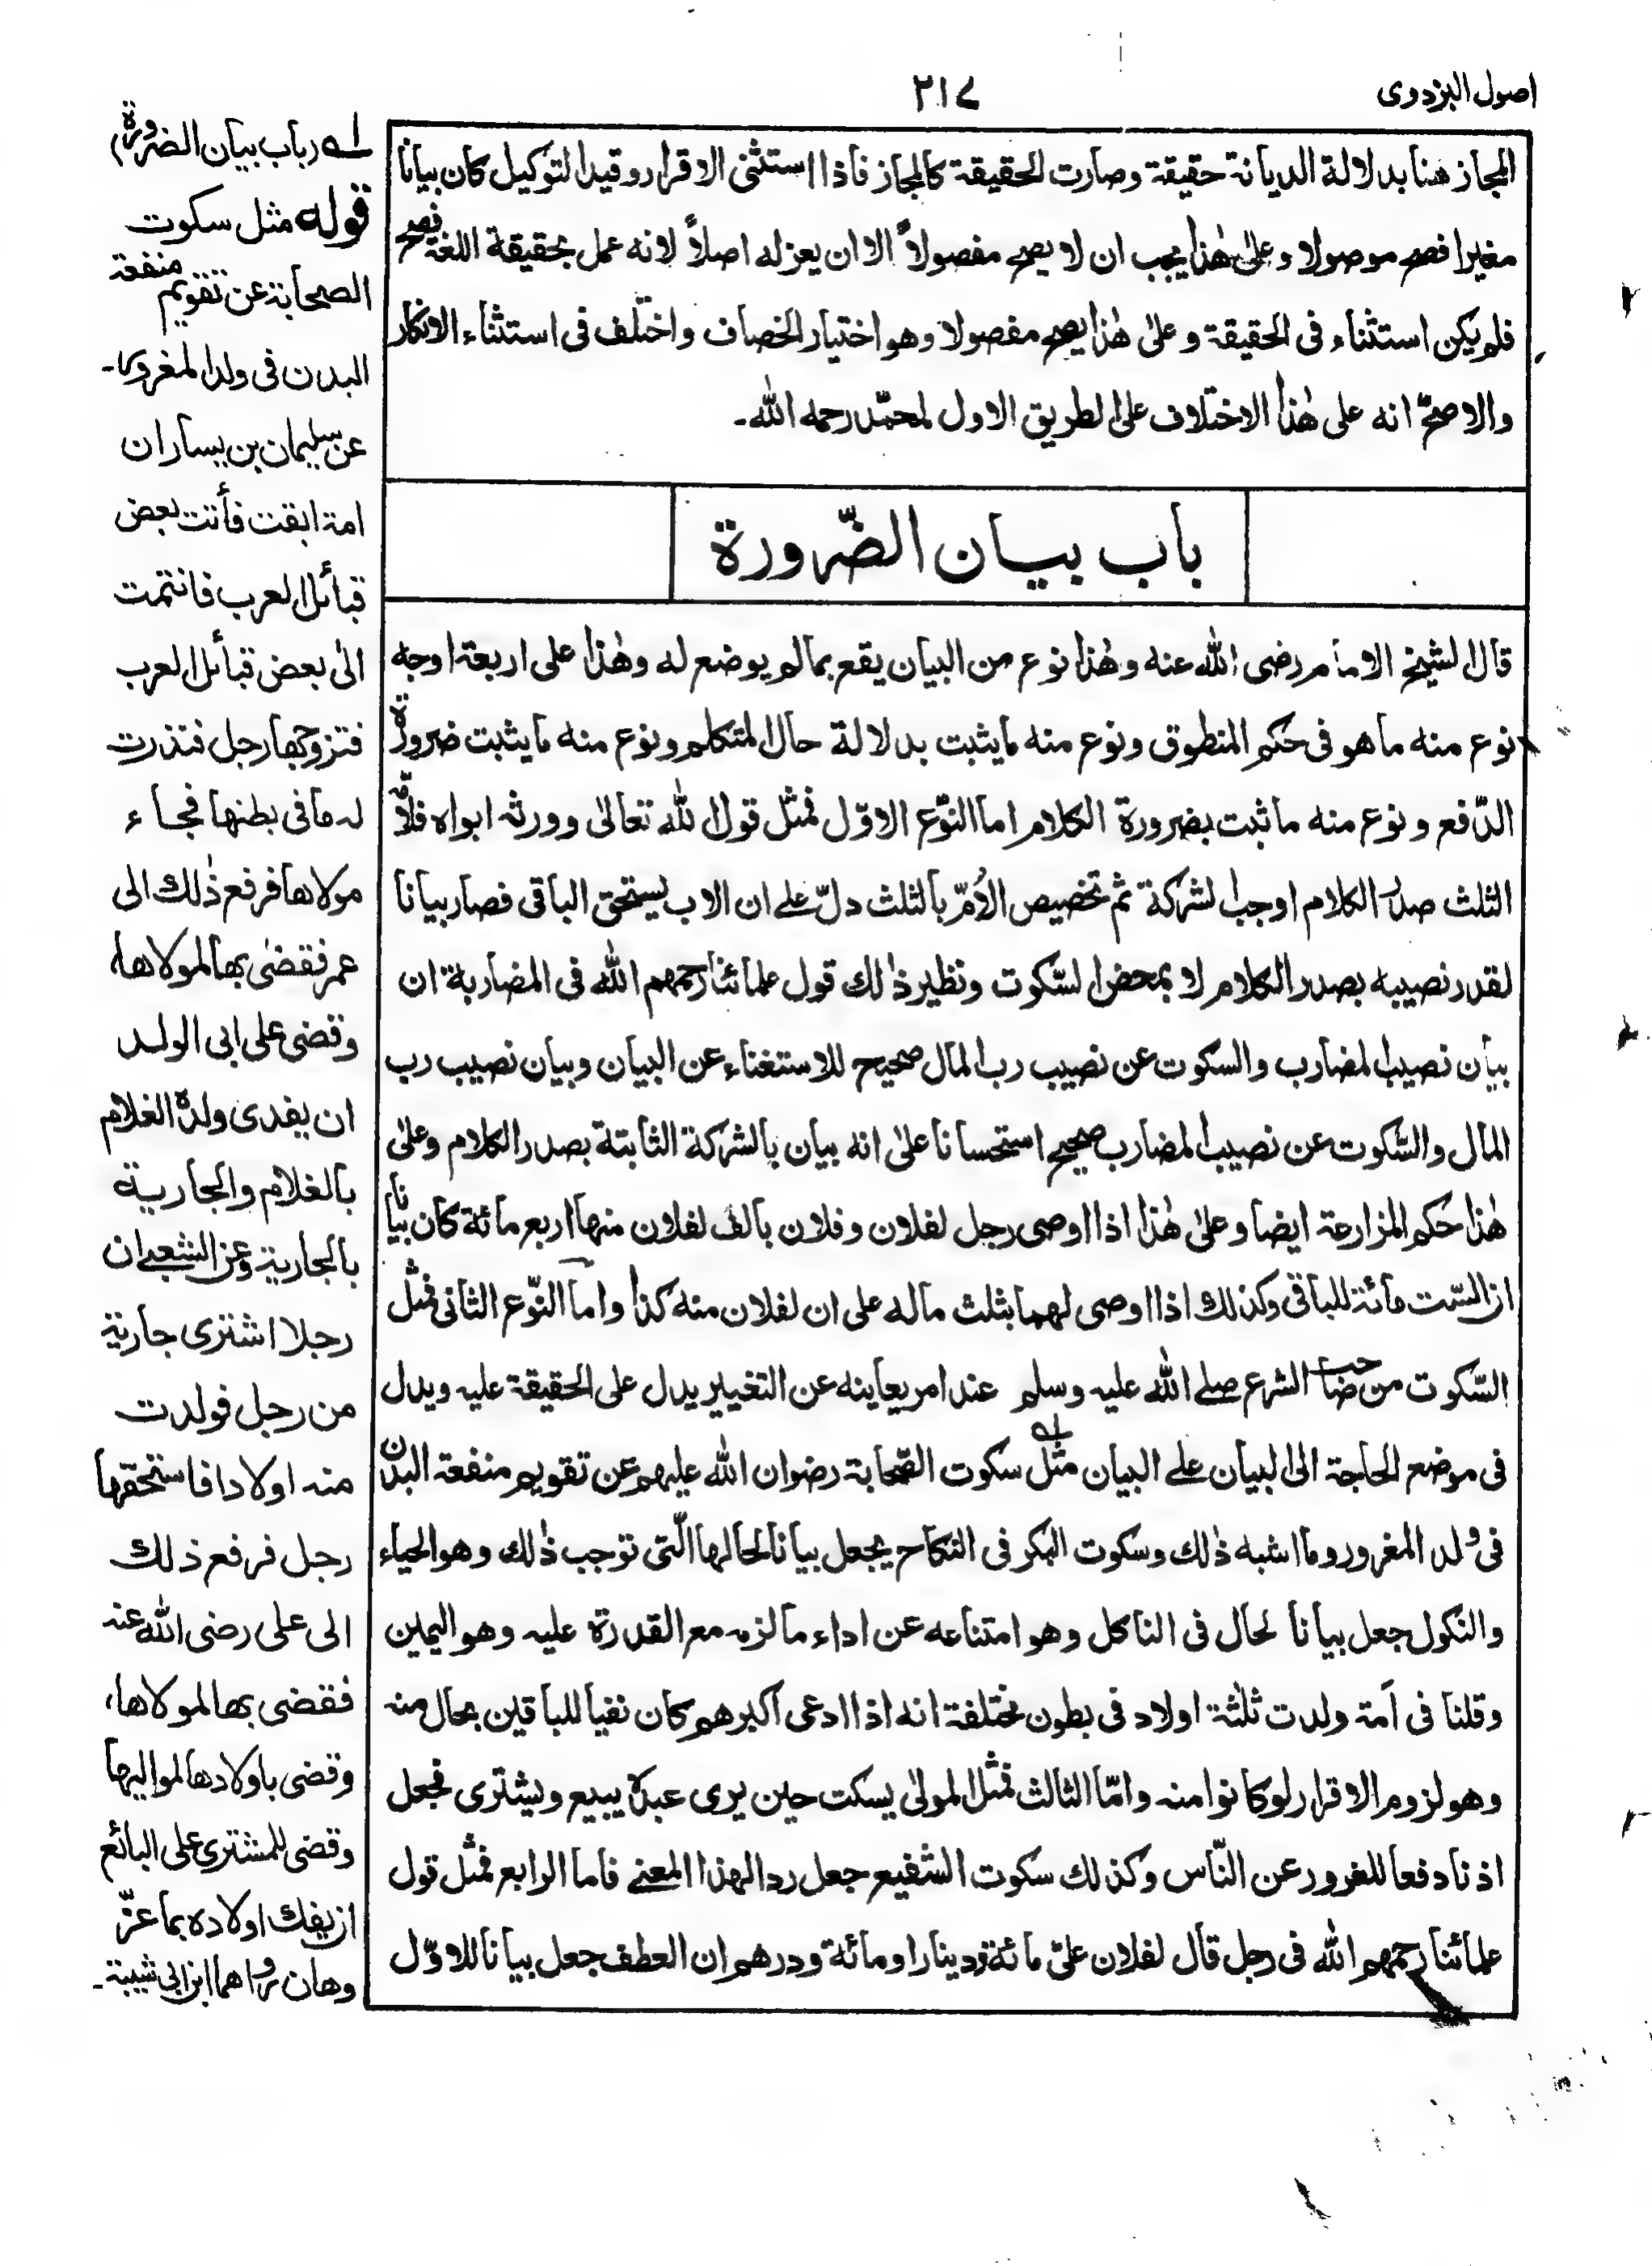 اصول البزدوی
۲۱۷
المجاز هنا بدلالة الديانة حقيقة وصارت الحقيقة كالمجاز فاذا استثنى الاقرار وقيد التوكيل كان بيانا
مغيرا فصح موصولا وعلىٰ هٰذا يجب ان لا يصح مفصولاً الا ان يعزله اصلاً لانه عمل بحقيقة اللغة فصح
فلم يكن استثناء فى الحقيقة وعلىٰ هٰذا يصح مفصولا وهو اختيار الخصاف واختلف فى استثناء الانكار
والاصحّ انه على هٰذا الاختلاف على الطريق الاول لمحمّد رحمه الله۔
باب بيان الضّرورة
قال الشيخ الامام رضى الله عنه وهٰذا نوع من البيان يقع بمالم يوضع له وهٰذا على اربعة اوجه
نوع منه ما هو فى حكم المنطوق ونوع منه ما يثبت بدلالة حال المتكلم ونوع منه ما يثبت ضرورة
الدّفع ونوع منه ما ثبت بضرورة الكلام اما النّوع الاوّل فمثل قول الله تعالىٰ وورثه ابواه فلأمّه
الثلث صدر الكلام اوجب الشركة ثم تخصيص الاُمّ بالثلث دلّ علے ان الاب يستحق الباقى فصار بيانا
لقدر نصيبه بصدر الكلام لا بمحض السّكوت ونظير ذٰلك قول علمائنا رحمهم الله فى المضاربة ان
بيان نصيب المضارب والسكوت عن نصيب رب المال صحيح للاستغناء عن البيان وبيان نصيب رب
المال والسّكوت عن نصيب المضارب صحيح استحسانا علىٰ انه بيان بالشركة الثابتة بصدر الكلام وعلىٰ
هٰذا حكم المزارعة ايضا وعلىٰ هٰذا اذا اوصى رجل لفلان وفلان بالف لفلان منها اربع مائة كان بيانا
ان السّت مائة للباقى وكذلك اذا اوصى لهما بثلث ماله على ان لفلان منه كذا واما النّوع الثانى فمثل
السّكوت من صاحب الشرع صلے الله عليه وسلم عند امر يعاينه عن التغيير يدل على الحقيقة عليه ويدل
فى موضع الحاجة الى البيان علے البيان مثل سكوت الصّحابة رضوان الله عليهم عن تقويم منفعة البدن
فى ولد المغرور وما اشبه ذٰلك وسكوت البكر فى النكاح يجعل بيانا لحالها الّتى توجب ذٰلك وهو الحياء
والنّكول جعل بيانا لحال فى الناكل وهو امتناعه عن اداء ما لزمه مع القدرة عليه وهو اليمين
وقلنا فى اَمة ولدت ثلٰثة اولاد فى بطون مختلفة انه اذا ادعى اكبرهم كان نفيا للباقين بحال منه
وهو لزوم الاقرار لو كانوا منه وامّا الثالث فمثل المولىٰ يسكت حين يرى عبده يبيع ويشترى فجعل
اذنا دفعا للغرور عن النّاس وكذلك سكوت الشفيع جعل ردا لهذا المعنے فاما الرابع فمثل قول
علمائنا رحمهم الله فى رجل قال لفلان علىّ مائة ودينار او مائة ودرهم ان العطف جعل بيانا للاوّل
لـه (باب بيان الضرورة)
قوله مثل سكوت
الصحابة عن تقويم منفعة
البدن فى ولد المغرور۔
عن سليمان بن يسار ان
امة ابقت فأتت بعض
قبائل العرب فانتمت
الىٰ بعض قبائل العرب
فتزوجها رجل فنذرت
له ما فى بطنها فجاء
مولاها فرفع ذٰلك الى
عمر فقضىٰ بها لمولاها،
وقضى على ابى الولد
ان يفدى ولده الغلام
بالغلام والجارية
بالجارية وعن الشعبے ان
رجلا اشترى جارية
من رجل فولدت
منه اولادا فاستحقها
رجل فرفع ذلك
الى على رضى الله عنه
فقضى بها لمولاها،
وقضى باولادها لمواليها
وقضى للمشترى على البائع
ان يفك اولاده بما عزّ
وهان رواهما ابن ابى شيبة۔